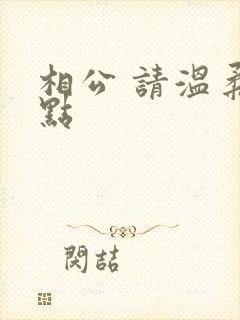 相公 請溫柔
點
閔喆